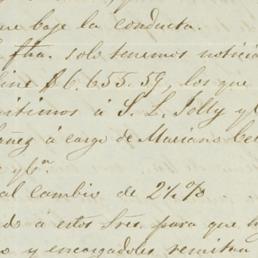 ue baje la conducta.
fha. solo tenemos noticia
line $6.655.59, los que
itimos á S. L. Jolly y C
añez á cargo de Mariano
y Ca.
al cambio de 2½%
do á estos Sres. para que
o y encargadoles remitan